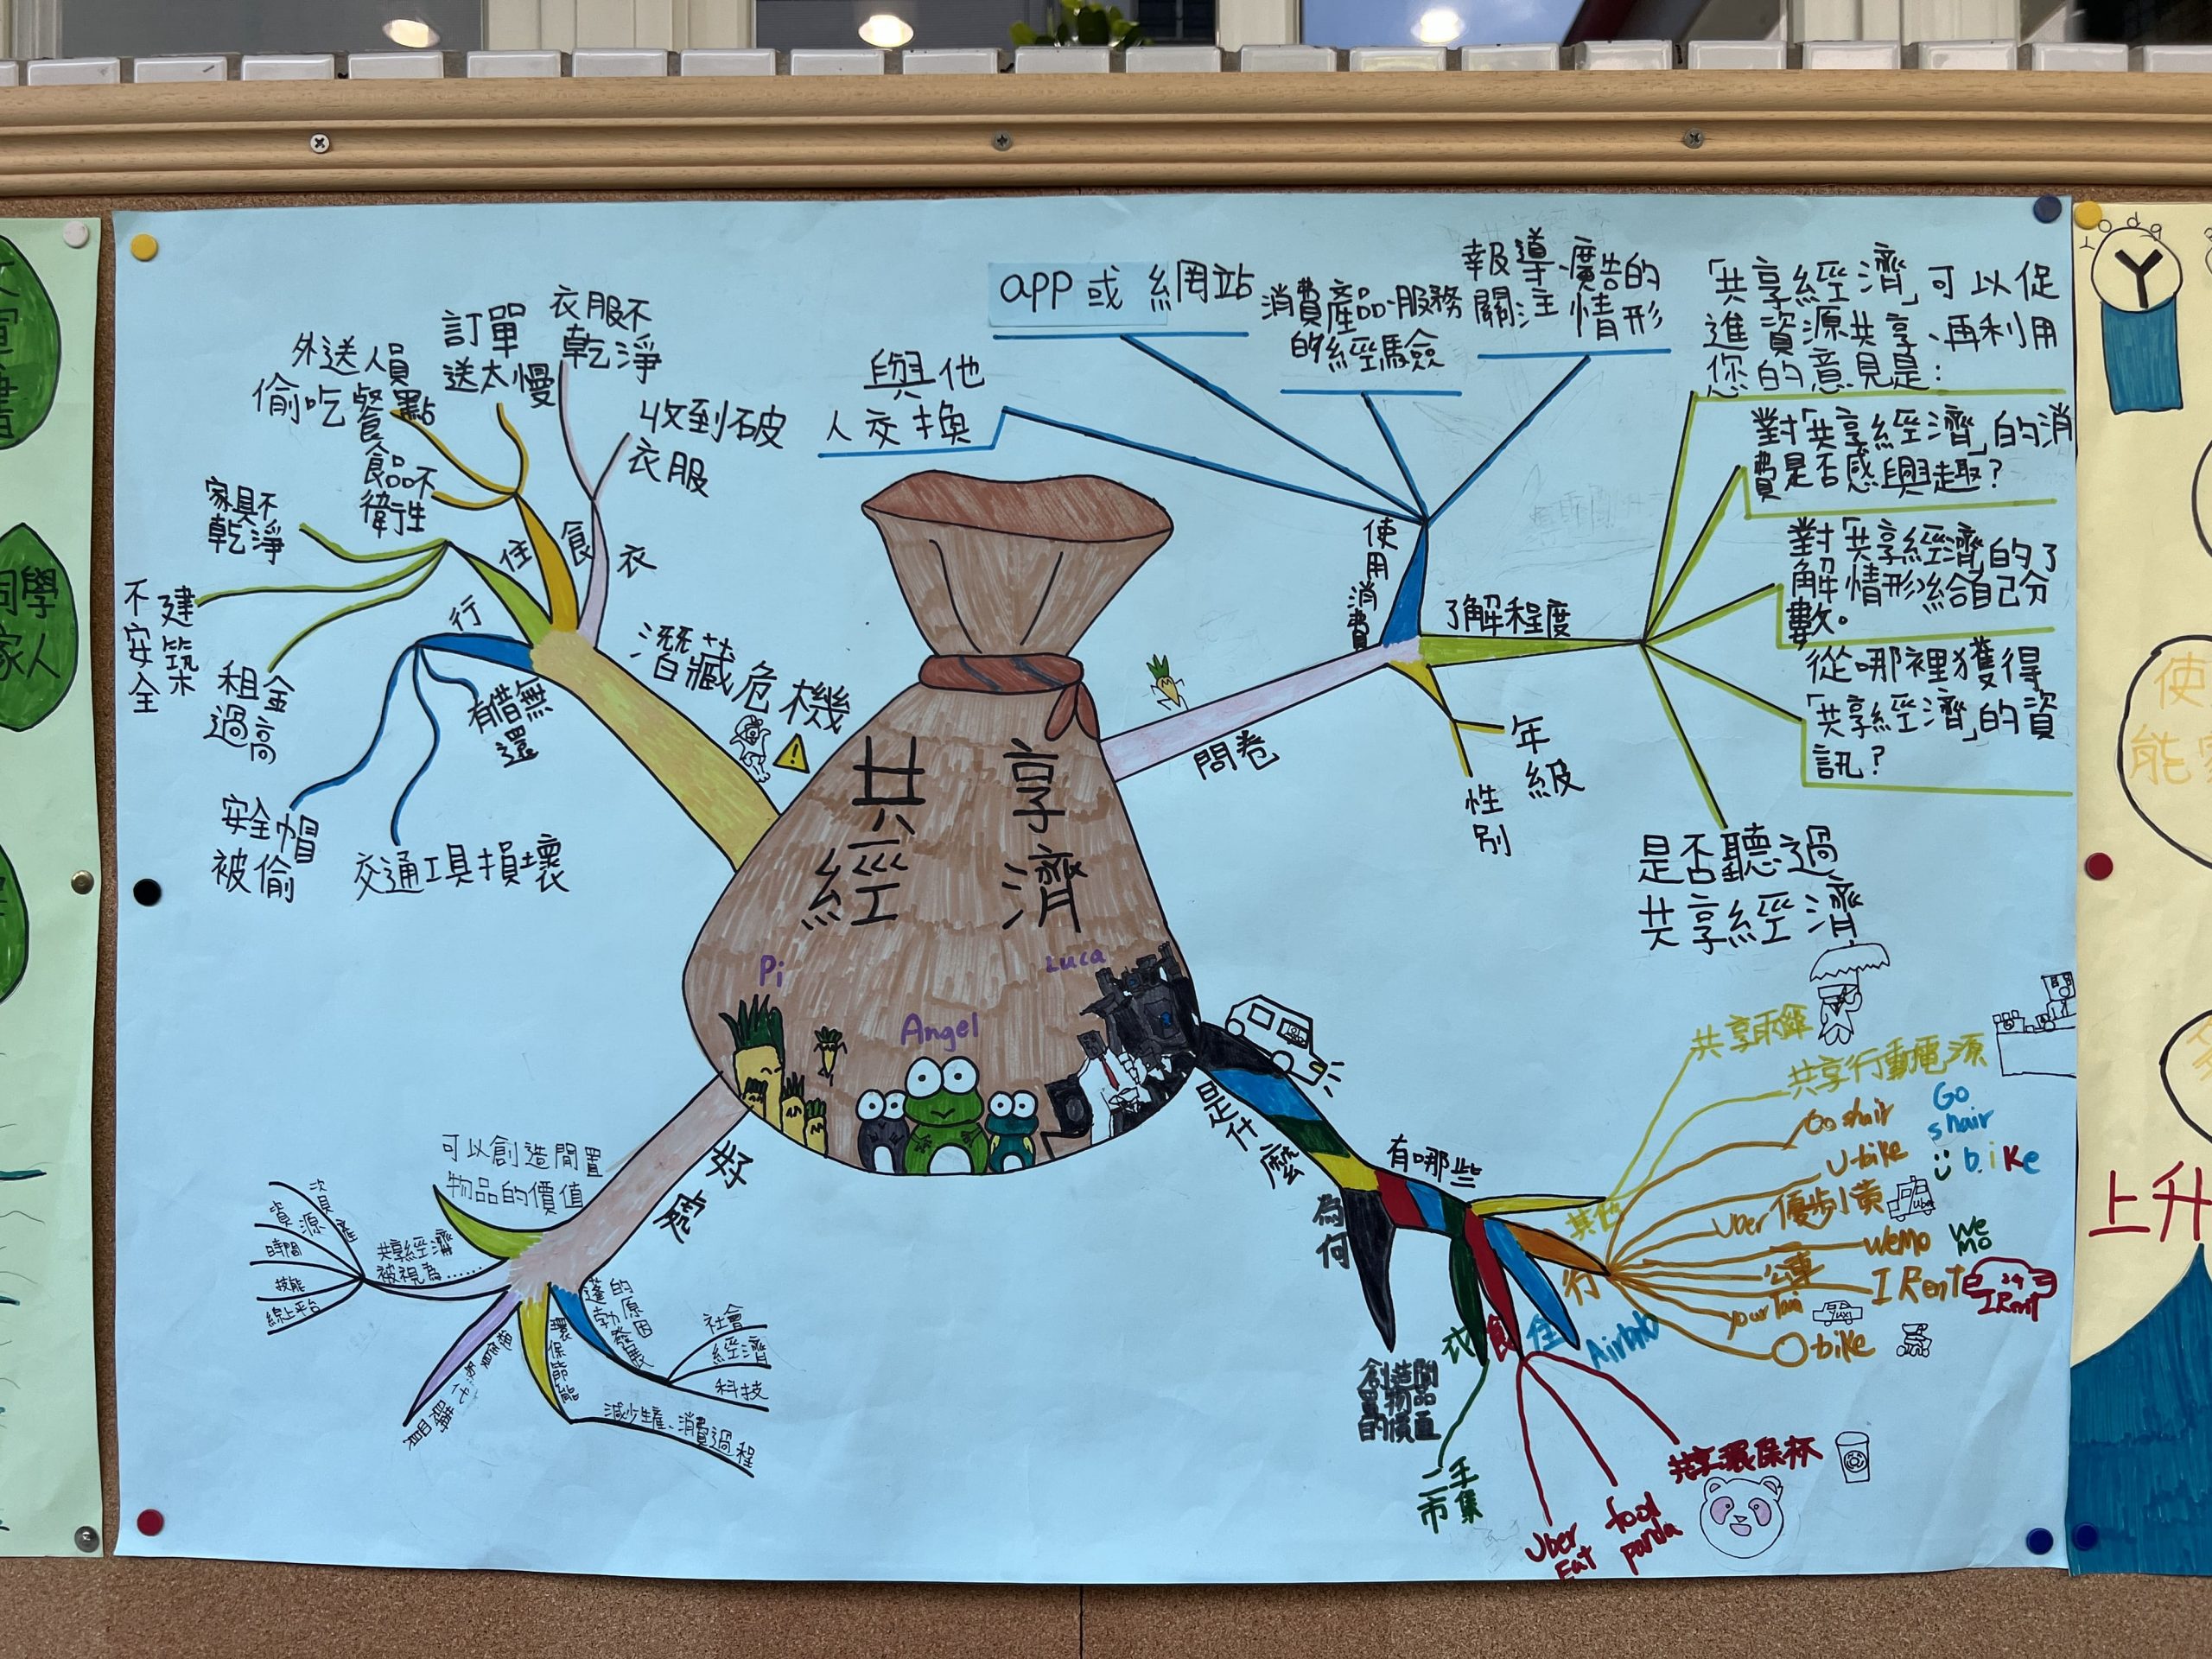 共享
經濟
Pi
Angel
Luca
潛藏危機
衣
衣服不
乾淨
收到破
衣服
食
訂單
送太慢
外送人員
偷吃餐點
食品不
衛生
住
家具不
乾淨
建築
不安全
租金
過高
行
有借無
還
安全帽
被偷
交通工具損壞
問卷
使用消費
與他
人交換
app或 網站
消費產品、服務
的經驗
報導、廣告的
關注情形
了解程度
「共享經濟」可以促
進資源共享、再利用
您的意見是:
對「共享經濟」的消
費是否感興趣?
對「共享經濟」的了
解情形給自己分
數。
從哪裡獲得
「共享經濟」的資
訊?
是否聽過
共享經濟
年級
性別
好處
可以創造閒置
物品的價值
共享經濟
被視為......
資源
時間
技能
線上平台
環保節能
減少生產、消費過程
蓬勃發展
的原因
社會
經濟
科技
是什麼
為何
創造閒
置物品
的價值
有哪些
其他
共享雨傘
共享行動電源
行
Goshair
Go
shair
U-bike
bike
Uber 優步小黃
Uber
WeMo
We
Mo
公車
I Rent
IRent
your Taxi
Taxi
Obike
住
Airbnb
食
共享環保杯
food
panda
Uber
Eat
衣
二手
市集
同學
家人
使
能
上升
Y